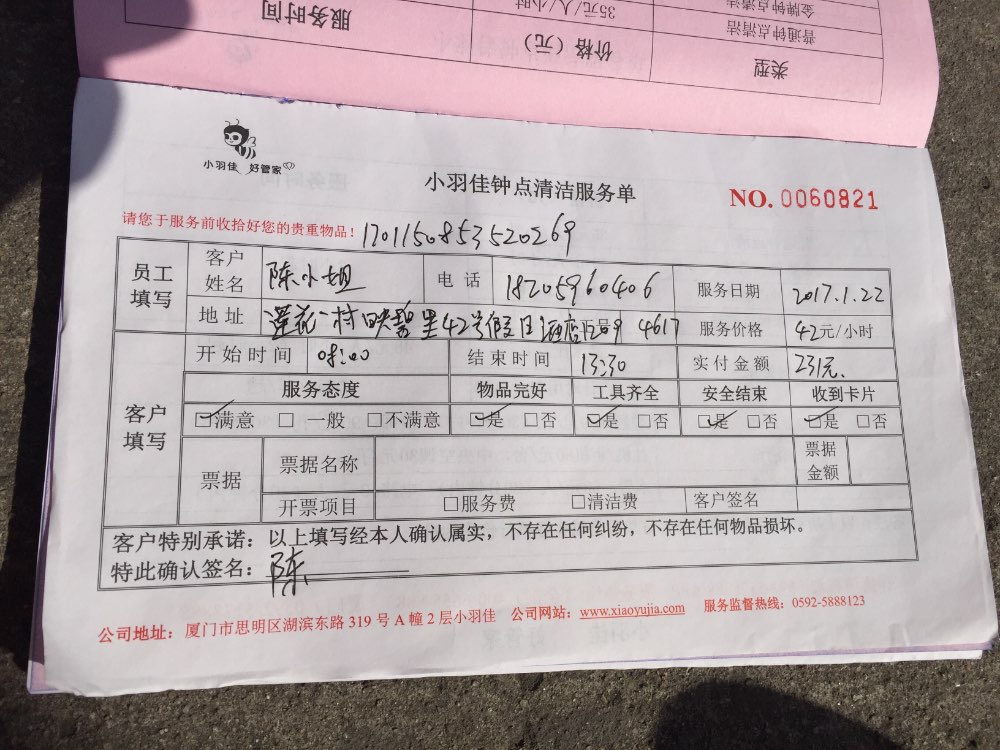 服务时间
价格（元）
类型
35元/人/小时
普通钟点清洁
金牌钟点清洁
小羽佳 好管家
小羽佳钟点清洁服务单
NO. 0060821
请您于服务前收拾好您的贵重物品！ 1701150853520269
员工填写 客户姓名 陈小姐 电话 18205960406 服务日期 2017.1.22
地址 莲花一村映碧里42号假日酒店1209 4617 服务价格 42元/小时
客户填写 开始时间 08:00 结束时间 13:30 实付金额 231元.
服务态度 物品完好 工具齐全 安全结束 收到卡片
☑满意 □一般 □不满意 ☑是 □否 ☑是 □否 ☑是 □否 ☑是 □否
票据 票据名称 票据金额
开票项目 □服务费 □清洁费 客户签名
客户特别承诺：以上填写经本人确认属实，不存在任何纠纷，不存在任何物品损坏。
特此确认签名：陈
公司地址：厦门市思明区湖滨东路 319 号 A 幢 2 层小羽佳 公司网站：www.xiaoyujia.com 服务监督热线：0592-5888123